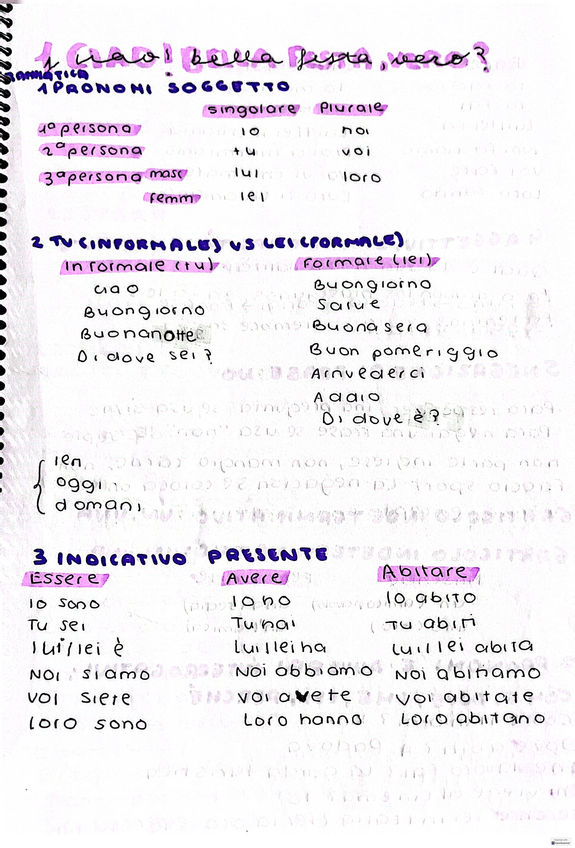 1 ciao! bella festa, vero?
GRAMMATICA
1 PRONOMI SOGGETTO
singolare plurale
1ª persona io noi
2ª persona tu voi
3ª persona masc lui loro
femm lei
2 TU (INFORMALE) VS LEI (FORMALE)
Informale (tu) Formale (lei)
ciao Buongiorno
Buongiorno Salve
Buonanotte Buonasera
Di dove sei? Buon pomeriggio
Arrivederci
Addio
Di dove è?
ieri
oggi
domani
3 INDICATIVO PRESENTE
Essere Avere Abitare
Io sono Io ho Io abito
Tu sei Tu hai Tu abiti
lui lei è lui lei ha lui lei abita
Noi siamo Noi abbiamo Noi abitiamo
Voi siete Voi avete Voi abitate
Loro sono Loro hanno Loro abitano